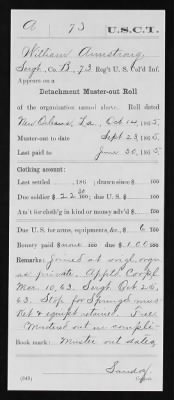 A 73 U.S.C.T.
William Armstrong
Sergt., Co. B, 73 Reg't U. S. Col'd Inf.
Appears on a
Detachment Muster-out Roll
of the organization named above. Roll dated
New Orleans, La., Oct 14, 1865.
Muster-out to date Sept 23, 1865.
Last paid to June 30, 1865.
Clothing account:
Last settled , 186 ; drawn since $ 100
Due soldier $ 22 30/100; due U. S. $ 100
Am't for cloth'g in kind or money adv'd $ 100
Due U. S. for arms, equipments, &c., $ 6 100
Bounty paid $ none 100; due $ 100 100
Remarks: Joined at orig. org'n
as private. Appt. Corpl.
Mar. 10, 63. Sergt. Oct 26,
63. Stop for Springf. mus-
ket & equipt retained.
Mustered out in compli-
Book mark: Muster out date,
Copyist.